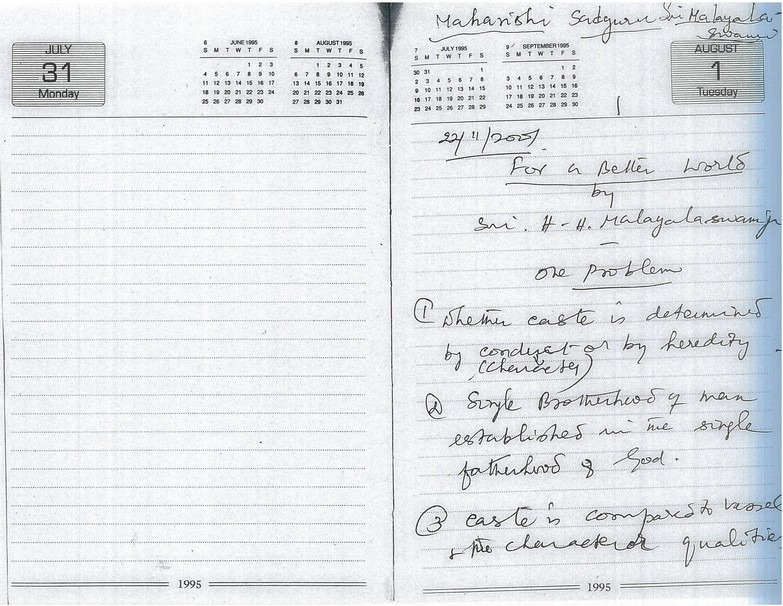 JULY
31
Monday
6 JUNE 1995
S M T W T F S
1 2 3
4 5 6 7 8 9 10
11 12 13 14 15 16 17
18 19 20 21 22 23 24
25 26 27 28 29 30
8 AUGUST 1995
S M T W T F S
1 2 3 4 5
6 7 8 9 10 11 12
13 14 15 16 17 18 19
20 21 22 23 24 25 26
27 28 29 30 31
1995
Maharishi Sadguru Sri Malayala-
Swami
7 JULY 1995
S M T W T F S
30 31 1
2 3 4 5 6 7 8
9 10 11 12 13 14 15
16 17 18 19 20 21 22
23 24 25 26 27 28 29
9 SEPTEMBER 1995
S M T W T F S
1 2
3 4 5 6 7 8 9
10 11 12 13 14 15 16
17 18 19 20 21 22 23
24 25 26 27 28 29 30
AUGUST
1
Tuesday
1
22/11/
For a Better World
by
Sri. H-H. Malayalaswamiji
One Problem
① Whether caste is determined
by conduct or by heredity
(Character)
② Single Brotherhood of man
established in the single
fatherhood of God.
③ Caste is compared to vessel
& the character qualities
1995